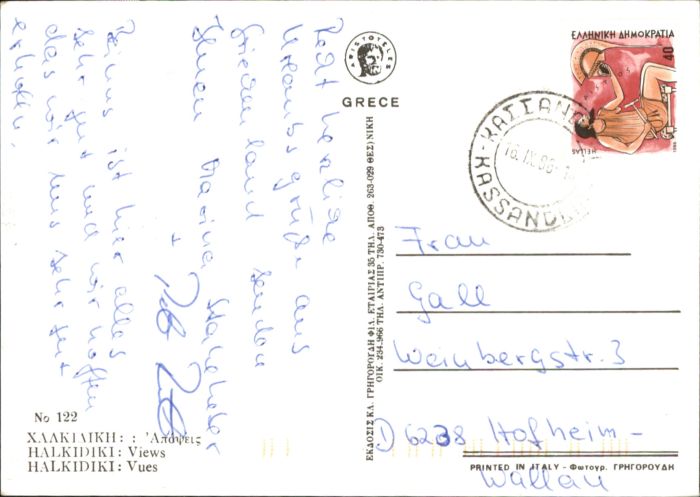 Recht herzliche
Urlaubsgrüße aus
Griechenland senden
Ihnen Marina
+
Bei uns ist hier alles
sehr gut und wir hoffen
das wir uns sehr gut
erholen.
No 122
ΧΑΛΚΙΔΙΚΗ: : Ἀπόψεις
HALKIDIKI: Views
HALKIDIKI: Vues
ARISTOTELES
GRECE
ΕΚΔΟΣΙΣ ΚΛ. ΓΡΗΓΟΡΟΥΔΗ ΦΙΛ. ΕΤΑΙΡΙΑΣ 35 ΤΗΛ. ΑΠΟΘ. 263-029 ΘΕΣ)ΝΙΚΗ
ΟΙΚ. 234-966 ΤΗΛ. ΑΝΤΙΠΡ. 730-473
ΕΛΛΗΝΙΚΗ ΔΗΜΟΚΡΑΤΙΑ
40
HELLAS
ΚΑΣΣΑΝΔ
KASSAND
Frau
Gall
Weinbergstr. 3
D 6238 Hofheim-
Wallau
PRINTED IN ITALY - Φωτογρ. ΓΡΗΓΟΡΟΥΔΗ